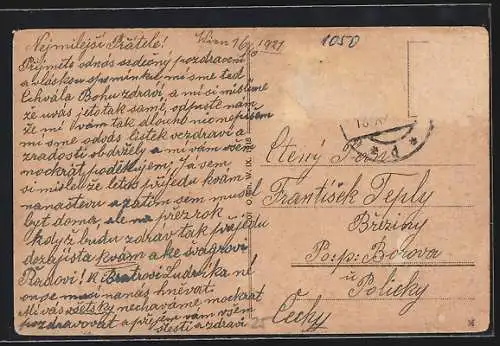 Nejmilejší Přátelé! Wien 16/x 1921
1050
Přijměte odnás srdečný pozdravení
a vláskou vspomínku mi sme tad
Echvála Bohu zdraví a mi si mislíme
že uvás jeto tak samí, odpuste nám
že mi kvám tak dlouho nic nepíšem
mi sme odvás lístek vezdraví a
zradosti obdrželi a mi vám všem
mockrát poděkujem, Já sem
si mislel že letos přijedu kvám
nanáčtevu a zatím sem musel
byt doma, ale na přezrok
když budu zdrav tak přijedu
derajista kvám a ke švagrovi
Řádovi! K Bratrovi Ludvíka né
on se má na nás hněvat.
Mi vás všetcky necháváme mockrát
pozdravovat a přejem vám všem
štestí a zdraví
Ctený Pan
František Teply
Březiny
Po:p: Borova
u
Poličky
Čechy